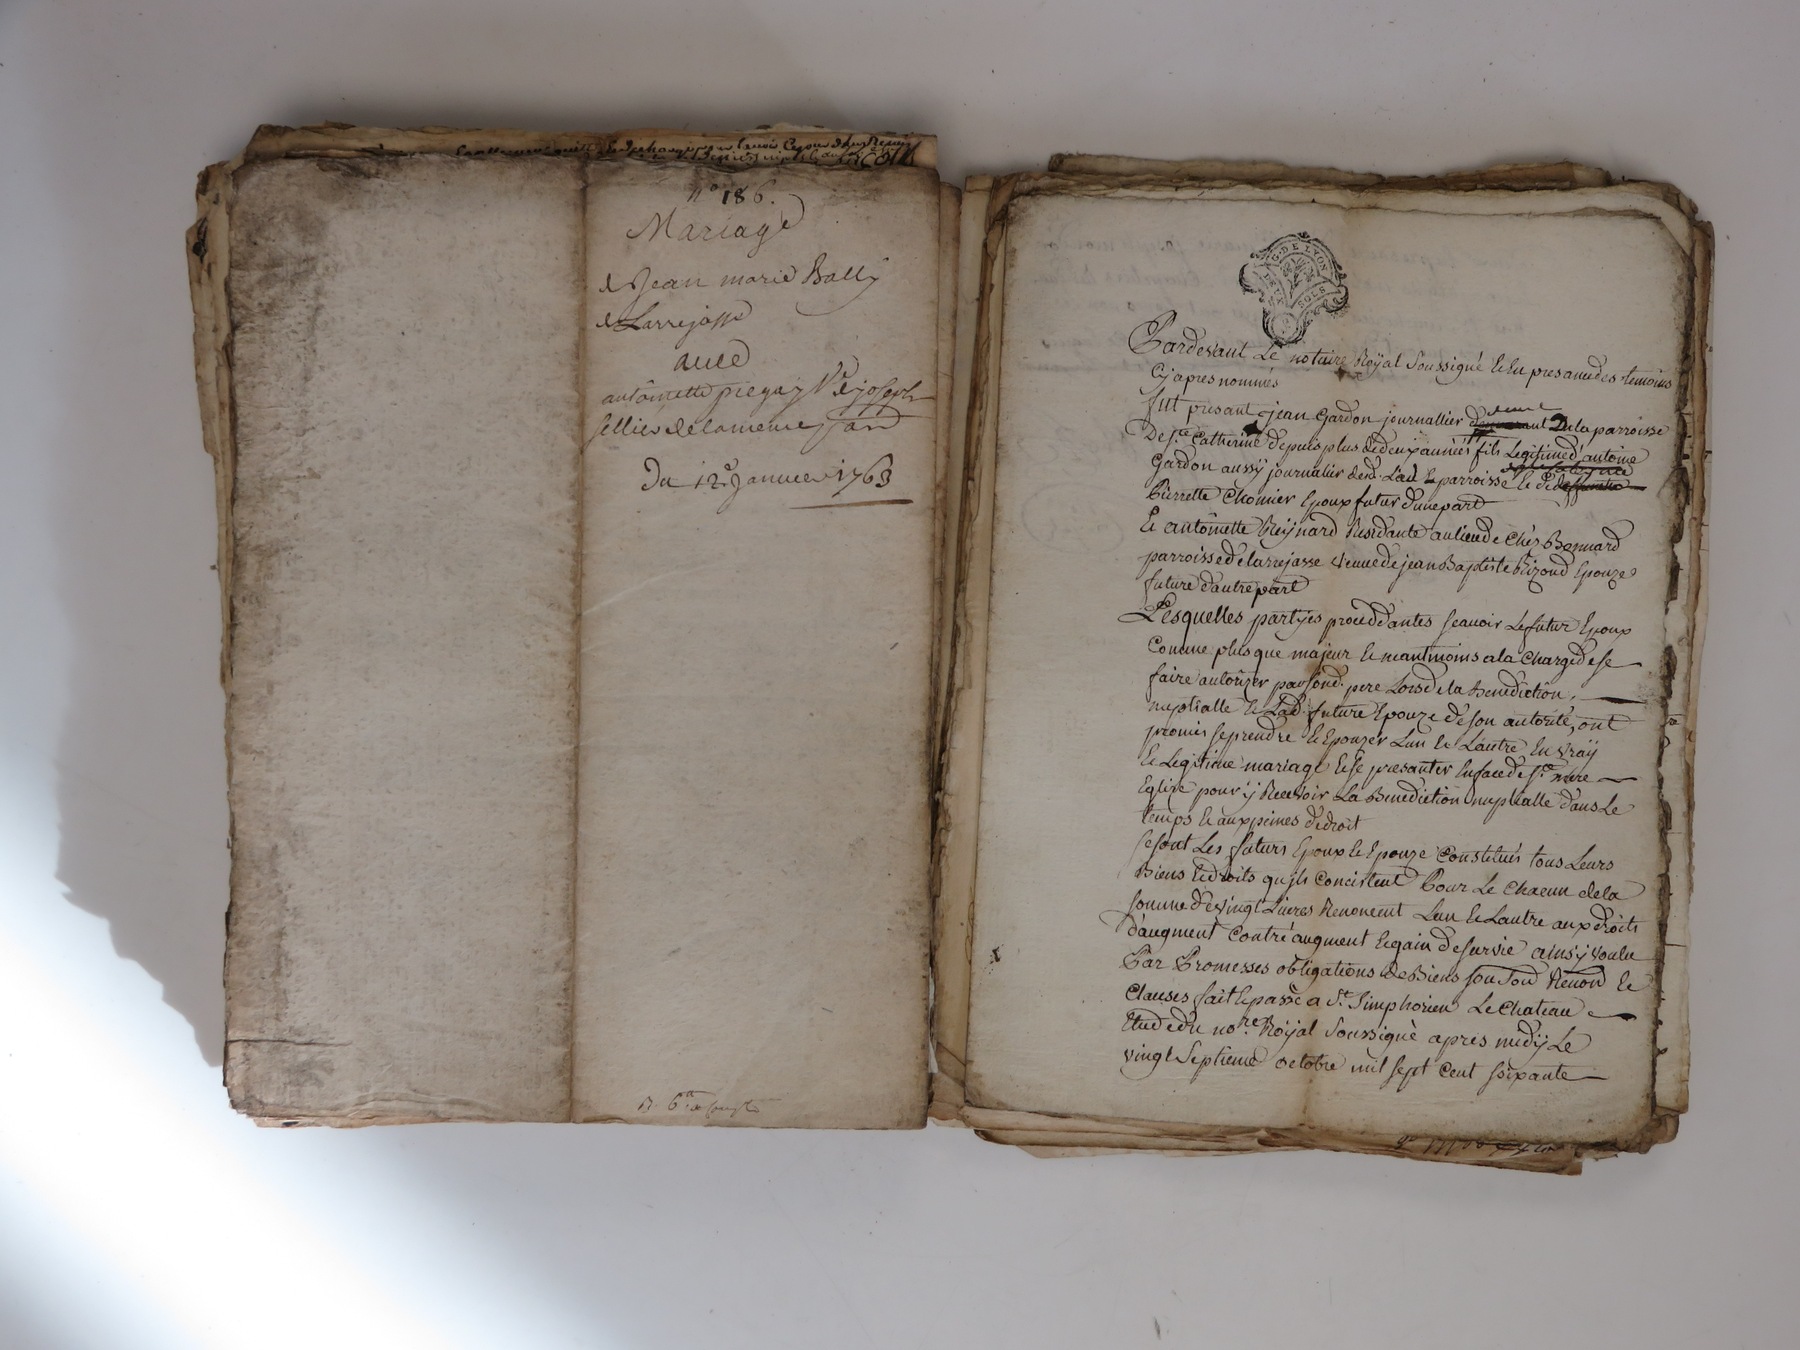 n° 186.
Mariage
de Jean marie Bally
de Larrejasse
avec
antoinette pregny Ve de joseph
sellier de la meme part
Du 12e. Janvier 1763
GG. DE LYON
DEUX SOLS
Pardevant Le notaire Royal Soussigné Et En presance des temoins
Cy apres nommés
fut presant jean Gardon journallier demeurant En la parroisse
De Ste. Catherine depuis plus de deux années fils Legitime d'antoine
Gardon aussy journalier de lad. parroisse Et de
Pierrette Chomier Epoux futur d'une part
Et antoinette Reynard Residante au lieu de Chez Bonnard
parroisse de larrejasse veuve de jean Baptiste Bizond Epouze
future d'autre part
Lesquelles partyes proceddantes scavoir Le futur Epoux
Comme plus que majeur Et neantmoins a la Charge de se
faire autorizer par sond. pere Lors de la Benediction
nuptialle Et Lad. future Epouze de son autorité, ont
promis se prendre Et Epouzer L'un Et L'autre En vray
Et Legitime mariage Et se presanter En face de Ste mere
Eglize pour y Recevoir La Benediction nuptialle dans Le
temps Et aux peines de droit
se sont Les futurs Epoux Et Epouze Constitués tous Leurs
Biens Et droits qu'jls Concistent Pour Le Chacun de la
somme de vingt Livres Renoncent L'un Et L'autre aux droits
d'augment Contre augment Et gain de survie ainsy voulu
Par Promesses obligations de Biens sou Renon Et
Clauses fait Et passé a St. Simphorien Le Chateau
Etude du nore. Royal Soussigné apres midy Le
vingt Septieme octobre mil sept Cent soixante